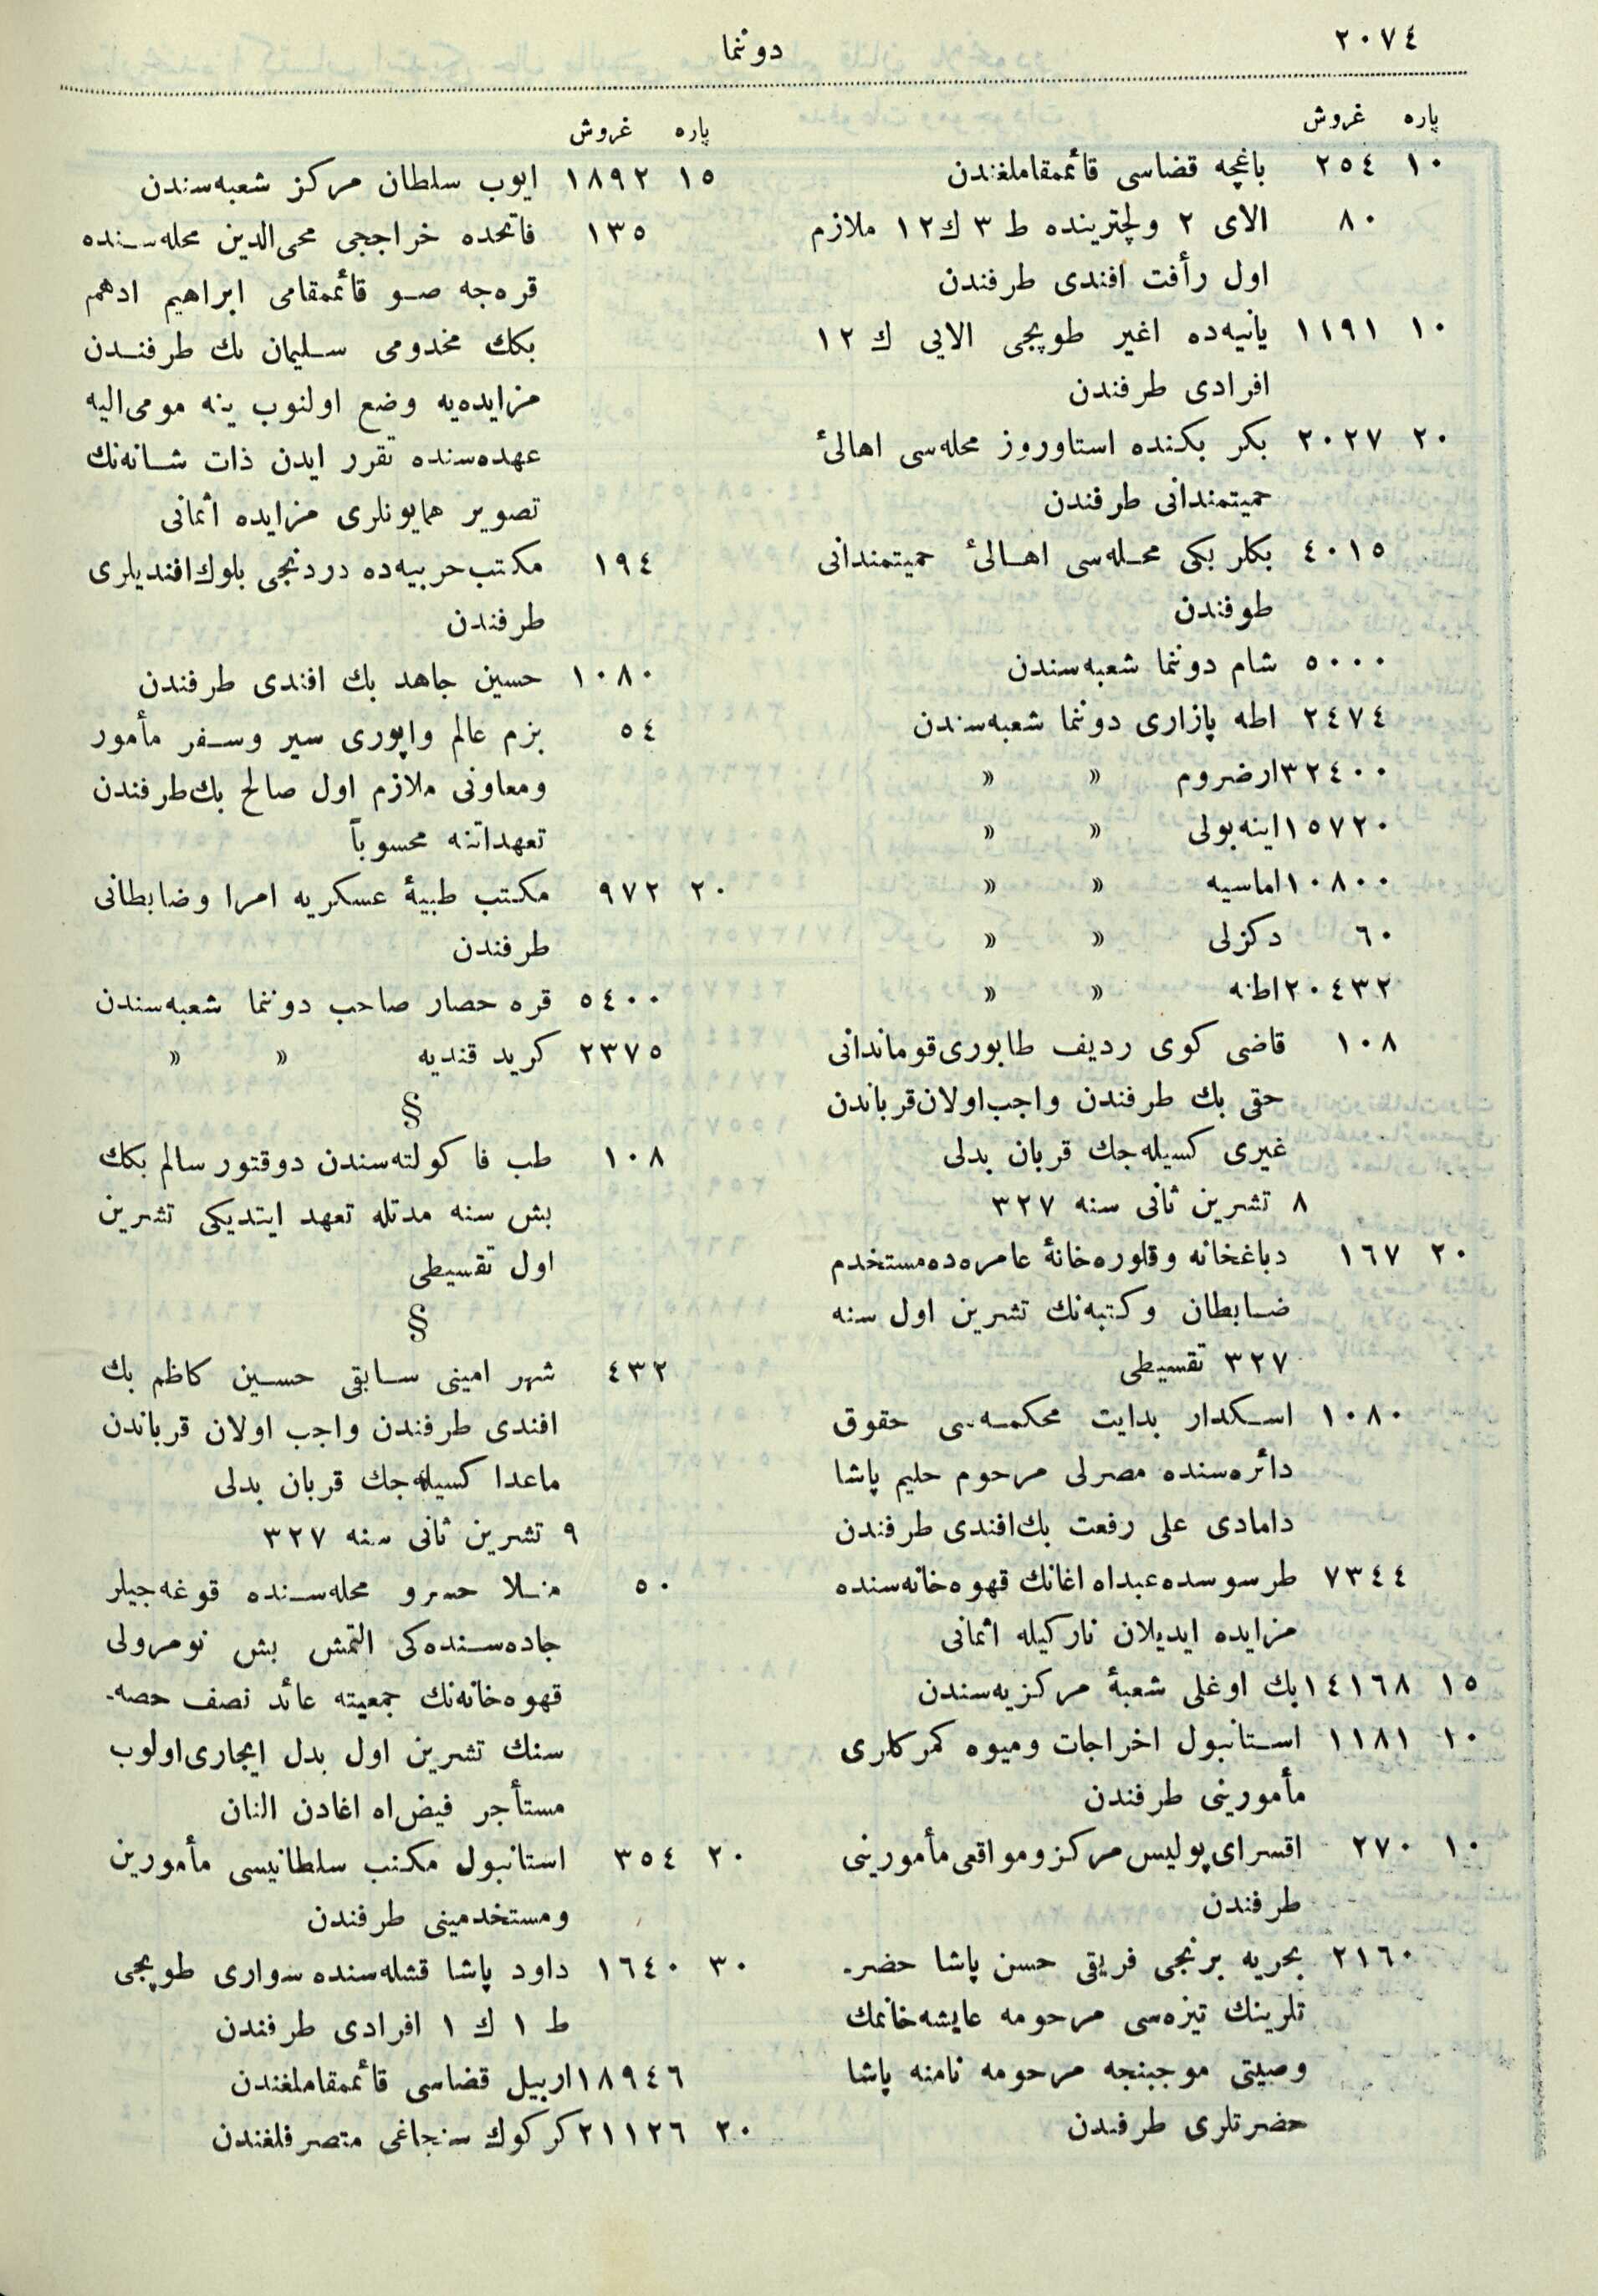 ٢٠٧٤
دوننما
پاره غروش
١٠ ٢٥٤ باغچه قضاسی قائممقاملغندن
٨٠ الای ٢ ولچترینده ط ٣ ك ١٢ ملازم
اول رأفت افندی طرفندن
١٠ ١١٩١ یانیه‌ده اغیر طوپجی الایی ك ١٢
افرادی طرفندن
٢٠ ٢٠٢٧ بكر بكنده استاوروز محله‌سی اهالیٔ
حمیتمندانی طرفندن
٤٠١٥ بكلر بكی محله‌سی اهالیٔ حمیتمندانی
طوفندن
٥٠٠٠ شام دوننما شعبه‌سندن
٢٤٧٤ اطه پازاری دوننما شعبه‌سندن
٣٢٤٠٠ ارضروم » »
١٥٧٢٠ اینه‌بولی » »
١٠٨٠٠ اماسیه » »
٦٠ دكزلی » »
٢٠٤٣٢ اطنه » »
١٠٨ قاضی كوی ردیف طابوری قوماندانی
حقی بك طرفندن واجب اولان قرباندن
غیری كسیله‌جك قربان بدلی
٨ تشرین ثانی سنه ٣٢٧
٢٠ ١٦٧ دباغخانه وقلوره‌خانۀ عامره‌ده مستخدم
ضابطان وكتبه‌نك تشرین اول سنه
٣٢٧ تقسیطی
١٠٨٠ اسكدار بدایت محكمه‌سی حقوق
دائره‌سنده مصرلی مرحوم حلیم پاشا
دامادی علی رفعت بك افندی طرفندن
٧٣٤٤ طرسوسده عبداه اغانك قهوه‌خانه‌سنده
مزایده ایدیلان ناركیله اثمانی
١٥ ١٤١٦٨ بك اوغلی شعبۀ مركزیه‌سندن
١٠ ١١٨١ استانبول اخراجات ومیوه كمركلری
مأمورینی طرفندن
١٠ ٢٧٠ اقسرای پولیس مركز ومواقعی مأمورینی
طرفندن
٢١٦٠ بحریه برنجی فریقی حسن پاشا حضر-
تلرینك تیزه‌سی مرحومه عایشه خانمك
وصیتی موجبنجه مرحومه نامنه پاشا
حضرتلری طرفندن
پاره غروش
١٥ ١٨٩٢ ایوب سلطان مركز شعبه‌سندن
١٣٥ فاتحده خراججی محی‌الدین محله‌سنده
قره‌جه صو قائممقامی ابراهیم ادهم
بكك مخدومی سلیمان بك طرفندن
مزایده‌یه وضع اولنوب ینه مومی‌الیه
عهده‌سنده تقرر ایدن ذات شانه‌نك
تصویر همایونلری مزایده اثمانی
١٩٤ مكتب حربیه‌ده دردنجی بلوك افندیلری
طرفندن
١٠٨٠ حسین جاهد بك افندی طرفندن
٥٤ بزم عالم واپوری سیر وسفر مأمور
ومعاونی ملازم اول صالح بك طرفندن
تعهداتنه محسوباً
٢٠ ٩٧٢ مكتب طبیۀ عسكریه امرا وضابطانی
طرفندن
٥٤٠٠ قره حصار صاحب دوننما شعبه‌سندن
٢٣٧٥ كرید قندیه » »
§
١٠٨ طب فاكولته‌سندن دوقتور سالم بكك
بش سنه مدتله تعهد ایتدیكی تشرین
اول تقسیطی
§
٤٣٢ شهر امینی سابقی حسین كاظم بك
افندی طرفندن واجب اولان قرباندن
ماعدا كسیله‌جك قربان بدلی
٩ تشرین ثانی سنه ٣٢٧
٥٠ منلا خسرو محله‌سنده قوغه‌جیلر
جاده‌سنده‌كی التمش بش نومرولی
قهوه‌خانه‌نك جمعیته عائد نصف حصه-
سنك تشرین اول بدل ایجاری اولوب
مستأجر فیض‌اه اغادن النان
٢٠ ٣٥٤ استانبول مكتب سلطانیسی مأمورین
ومستخدمینی طرفندن
٣٠ ١٦٤٠ داود پاشا قشله‌سنده سواری طوپجی
ط ١ ك ١ افرادی طرفندن
١٨٩٤٦ اربیل قضاسی قائممقاملغندن
٢٠ ٢١١٢٦ كركوك سنجاغی متصرفلغندن